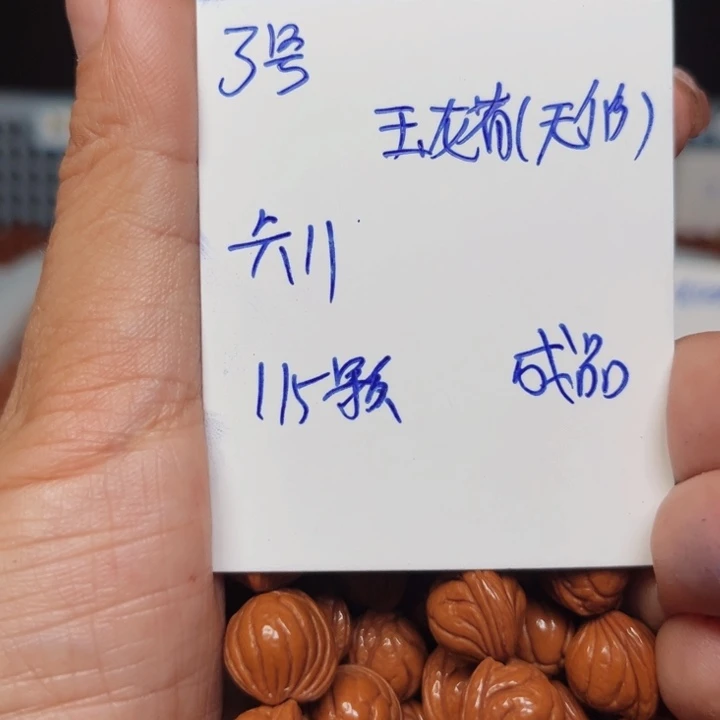 3号
王龙茜(天娇)
六川
115颗
成品